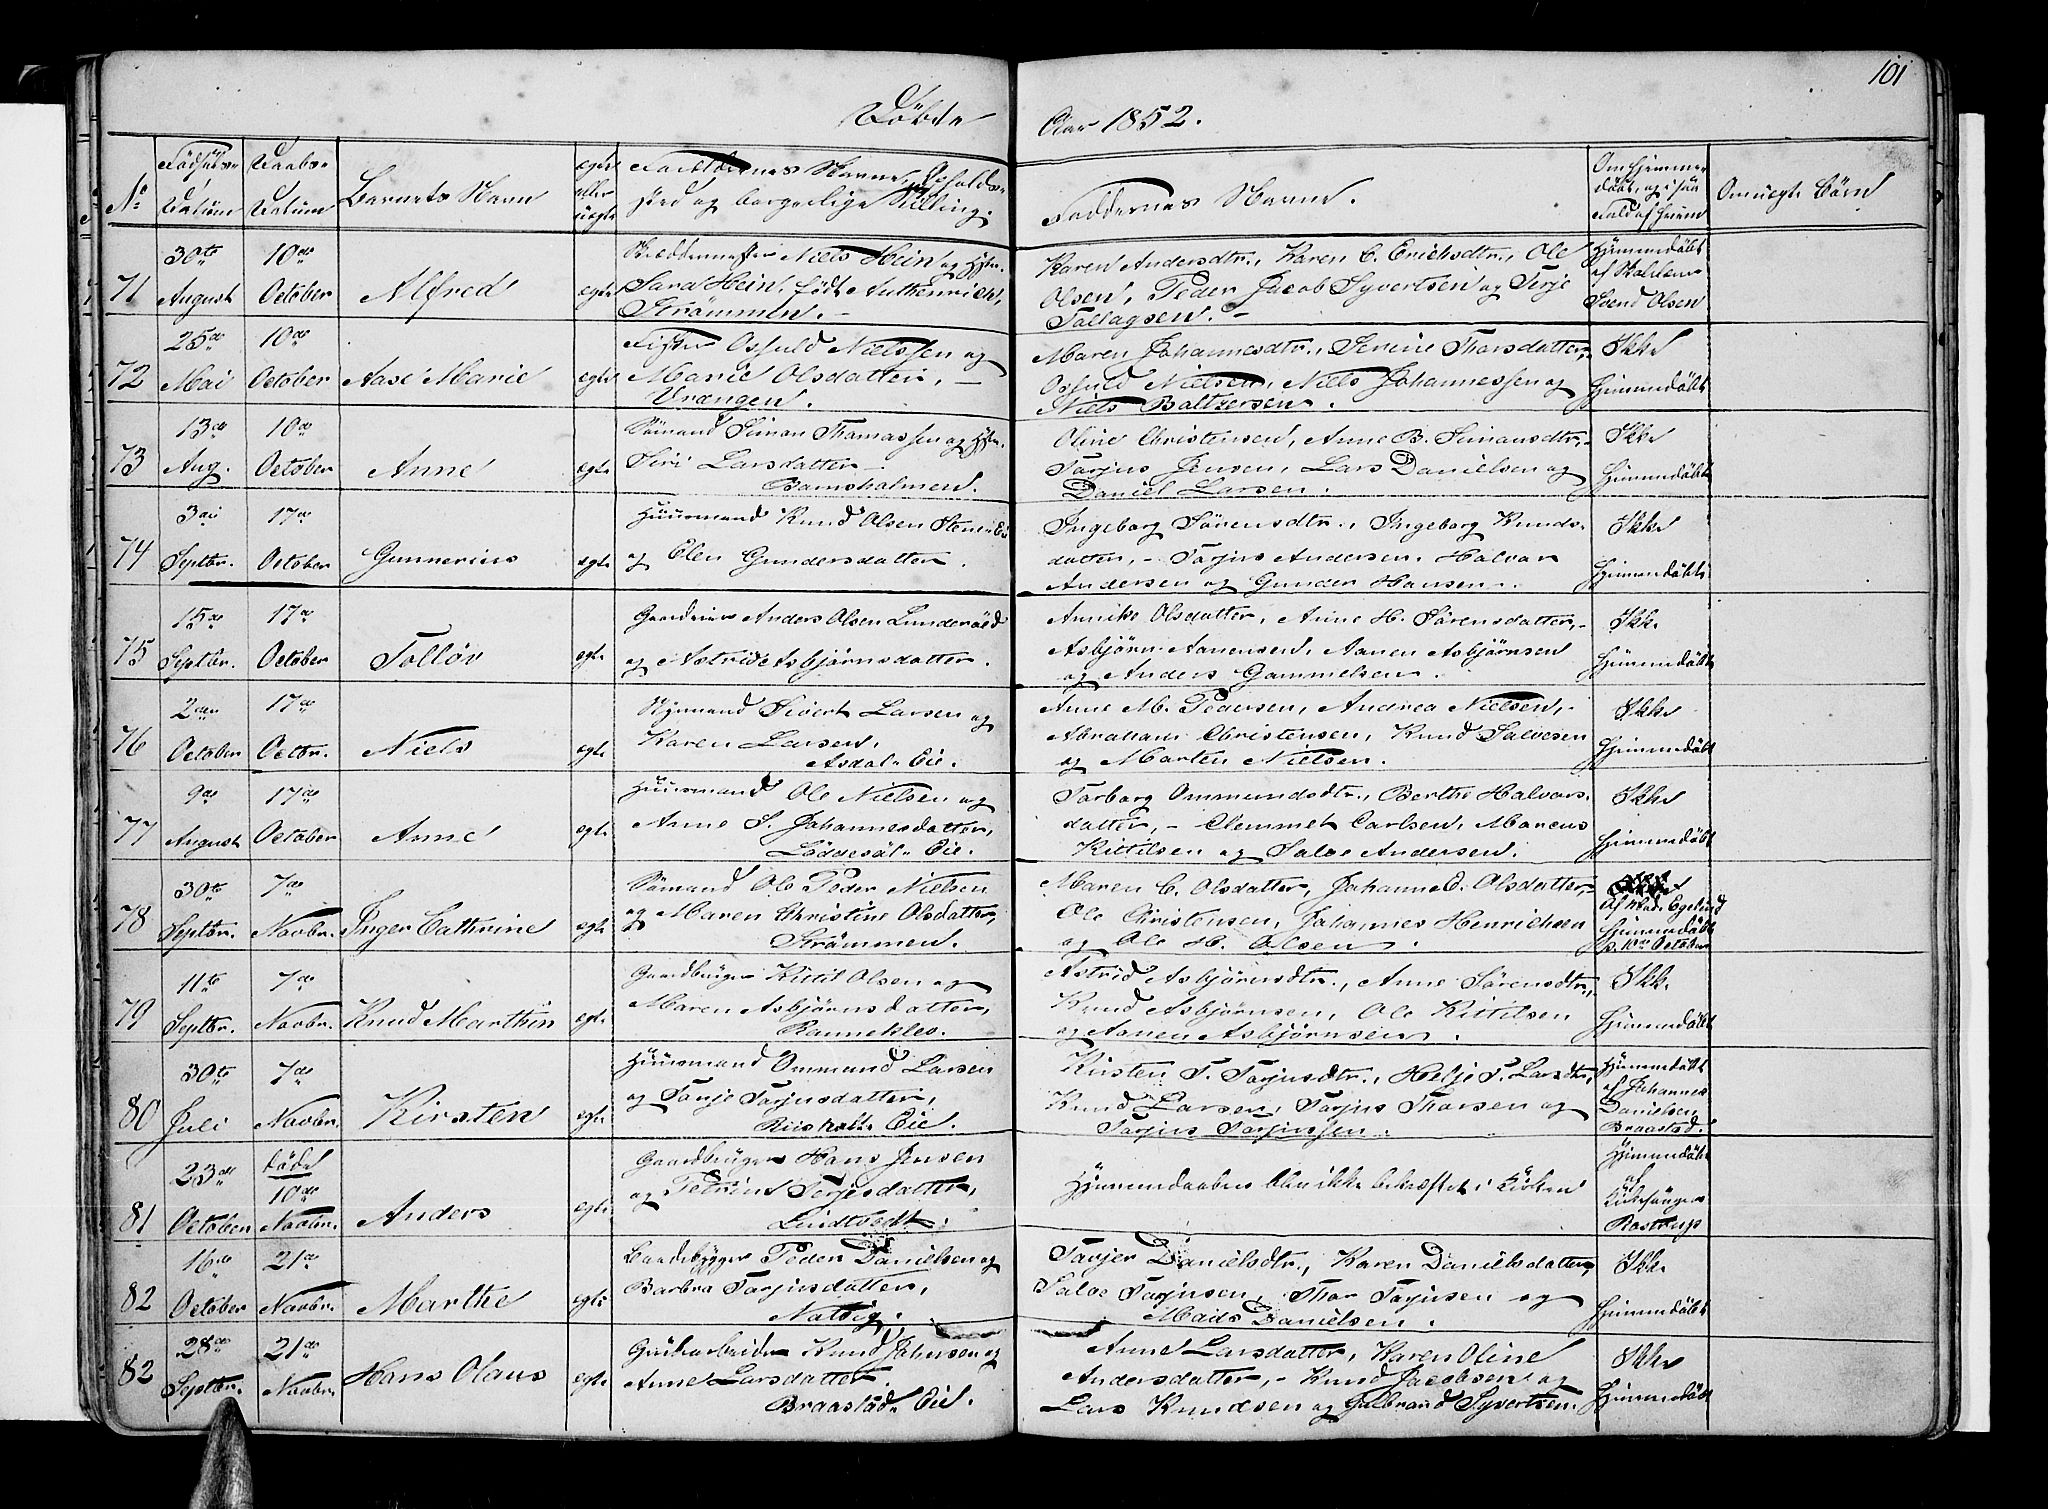 101
Döbte
Aar 1852.
No
Födsels-
Datum
Daabs-
Datum
Barnets Navn
egte
eller
uegte
Forældrenes Navne, Opholds-
sted og borgerlige Stilling.
Faddernes Navne.
Om hjemme-
döbt, og i saa
Fald af hvem
Om uegte Börn
71
30te
August
10de
October
Alfred
egte
Niels Hein og Hstr.
Sara Hein, född Authenrieth,
Strömmen. -
Karen Andersdtr., Karen C. Erichsdtr., Ole
Olsen, Peder Jacob Syvertsen og Terje
Tallagsen. -
Hjemmedöbt
af Skolelærer
Svend Olsen
72
25de
Mai
10de
October
Aase Marie
egte
Osfuld Nielssen og
Marie Olsdatter, -
Vrængen.
Maren Johannesdtr., Serine Thorsdatter,-
Osfuld Nielsen, Niels Johannessen og
Niels Baltzersen.
Ikke
hjemmedöbt
73
13de
Aug.
10de
October
Anne
egte
Sömand Simon Thomassen og Hstr.
Siri Larsdatter -
Bamsholmen.
Oline Christensen, Anne B. Simonsdtr,-
Tarjus Jensen, Lars Danielsen og
Daniel Larsen.
Ikke
hjemmedöbt
74
3die
Septbr.
17de
October
Gunnerius
egte
Huusmand Knud Olsen Steene Eie
og Elen Gundersdatter.
Ingeborg Sörensdtr., Ingeborg Knuds-
datter, - Tarjus Andersen, Halvor
Andersen og Gunder Hansen. -.
Ikke
hjemmedöbt
75
15de
Septbr.
17de
October
Tolløv
egte
Gaardeier Anders Olsen Lunderöed
og Astride Asbjörnsdatter.
Annike Olsdatter, Anne H. Sörensdatter,-
Asbjörn Aanensen, Aanen Asbjörnsen
og Anders Gammelsen.
Ikke
hjemmedöbt
76
2den
October
17de
Octbr.
Niels
egte
Styrmand Sivert Larsen og
Karen Larsen,
Asdal-Eie.
Anne M. Pedersen, Andrea Nielsen,-
Abraham Christensen, Knud Salvesen
og Morten Nielsen.
Ikke
hjemmedöbt
77
9de
August
17de
October
Anne
egte
Huusmand Ole Nielsen og
Anne S. Johannesdatter,
Löddesöl-Eie.
Torborg Ommundsdtr., Berthe Halvors-
datter, - Clemmet Carlsen, Marcus
Kittilsen og Salve Andersen.
Ikke
hjemmedöbt
78
30te
Septbr.
7de
Novbr.
Inger Cathrine
egte
Sömand Ole Peder Nielsen
og Maren Christine Olsdatter,
Strömmen.
Maren C. Olsdatter, Johanne O. Olsdatter,-
Ole Christensen, Johannes Henrichsen
og Ole H. Olsen.
Af Mad. Egelund
hjemmedöbt
d. 10de October
79
11te
Septbr.
7de
Novbr.
Knud Marthin
egte
Gaardbruger Kittil Olsen og
Maren Asbjörnsdatter,
Rannekleo.
Astrid Asbjörnsdtr., Anne Sörensdtr,-
Knud Asbjörnsen, Ole Kittilsen
og Aanen Asbjörnsen.
Ikke
hjemmedöbt
80
30te
Juli
7de
Novbr.
Kirsten
egte
Huusmand Ommund Larsen
og Tarje Tarjusdatter,
Riisholt Eie.
Kirsten T. Tarjusdtr., Helje T. Larsdtr,
Knud Larsen, Tarjus Thorsen og
Tarjus Tarjussen.
Hjemmedöbt
af Johannes
Danielsen,
Braastad.
81
23de
October
död
10de
Novbr.
Anders
egte
Gaardbruger Hans Jensen
og Petrine Terjesdatter,
Lindtvedt.
Hjemmedaaben blev ikke bekræftet i Kirken
Hjemmedöbt
af
Kirkesanger
Rostrup
82
16de
October
21de
Novbr.
Marthe
egte
Baadebygger Peder Danielsen og
Barbro Tarjusdatter,
Natvig.
Tarjer Danielsdtr., Karen Danielsdatter,
Salve Tarjusen, Thor Tarjusen og
Mads Danielsen.
Ikke
hjemmedöbt
82
28de
Septbr.
21de
Novbr.
Hans Olaus
egte
Knud Johnsen og
Anne Larsdatter,
Braastad-Eie.
Anne Larsdatter, Karen Oline
Andersdatter, - Knud Jacobsen og
Lars Knudsen og Gulbrand Syvertsen.
Ikke
hjemmedöbt